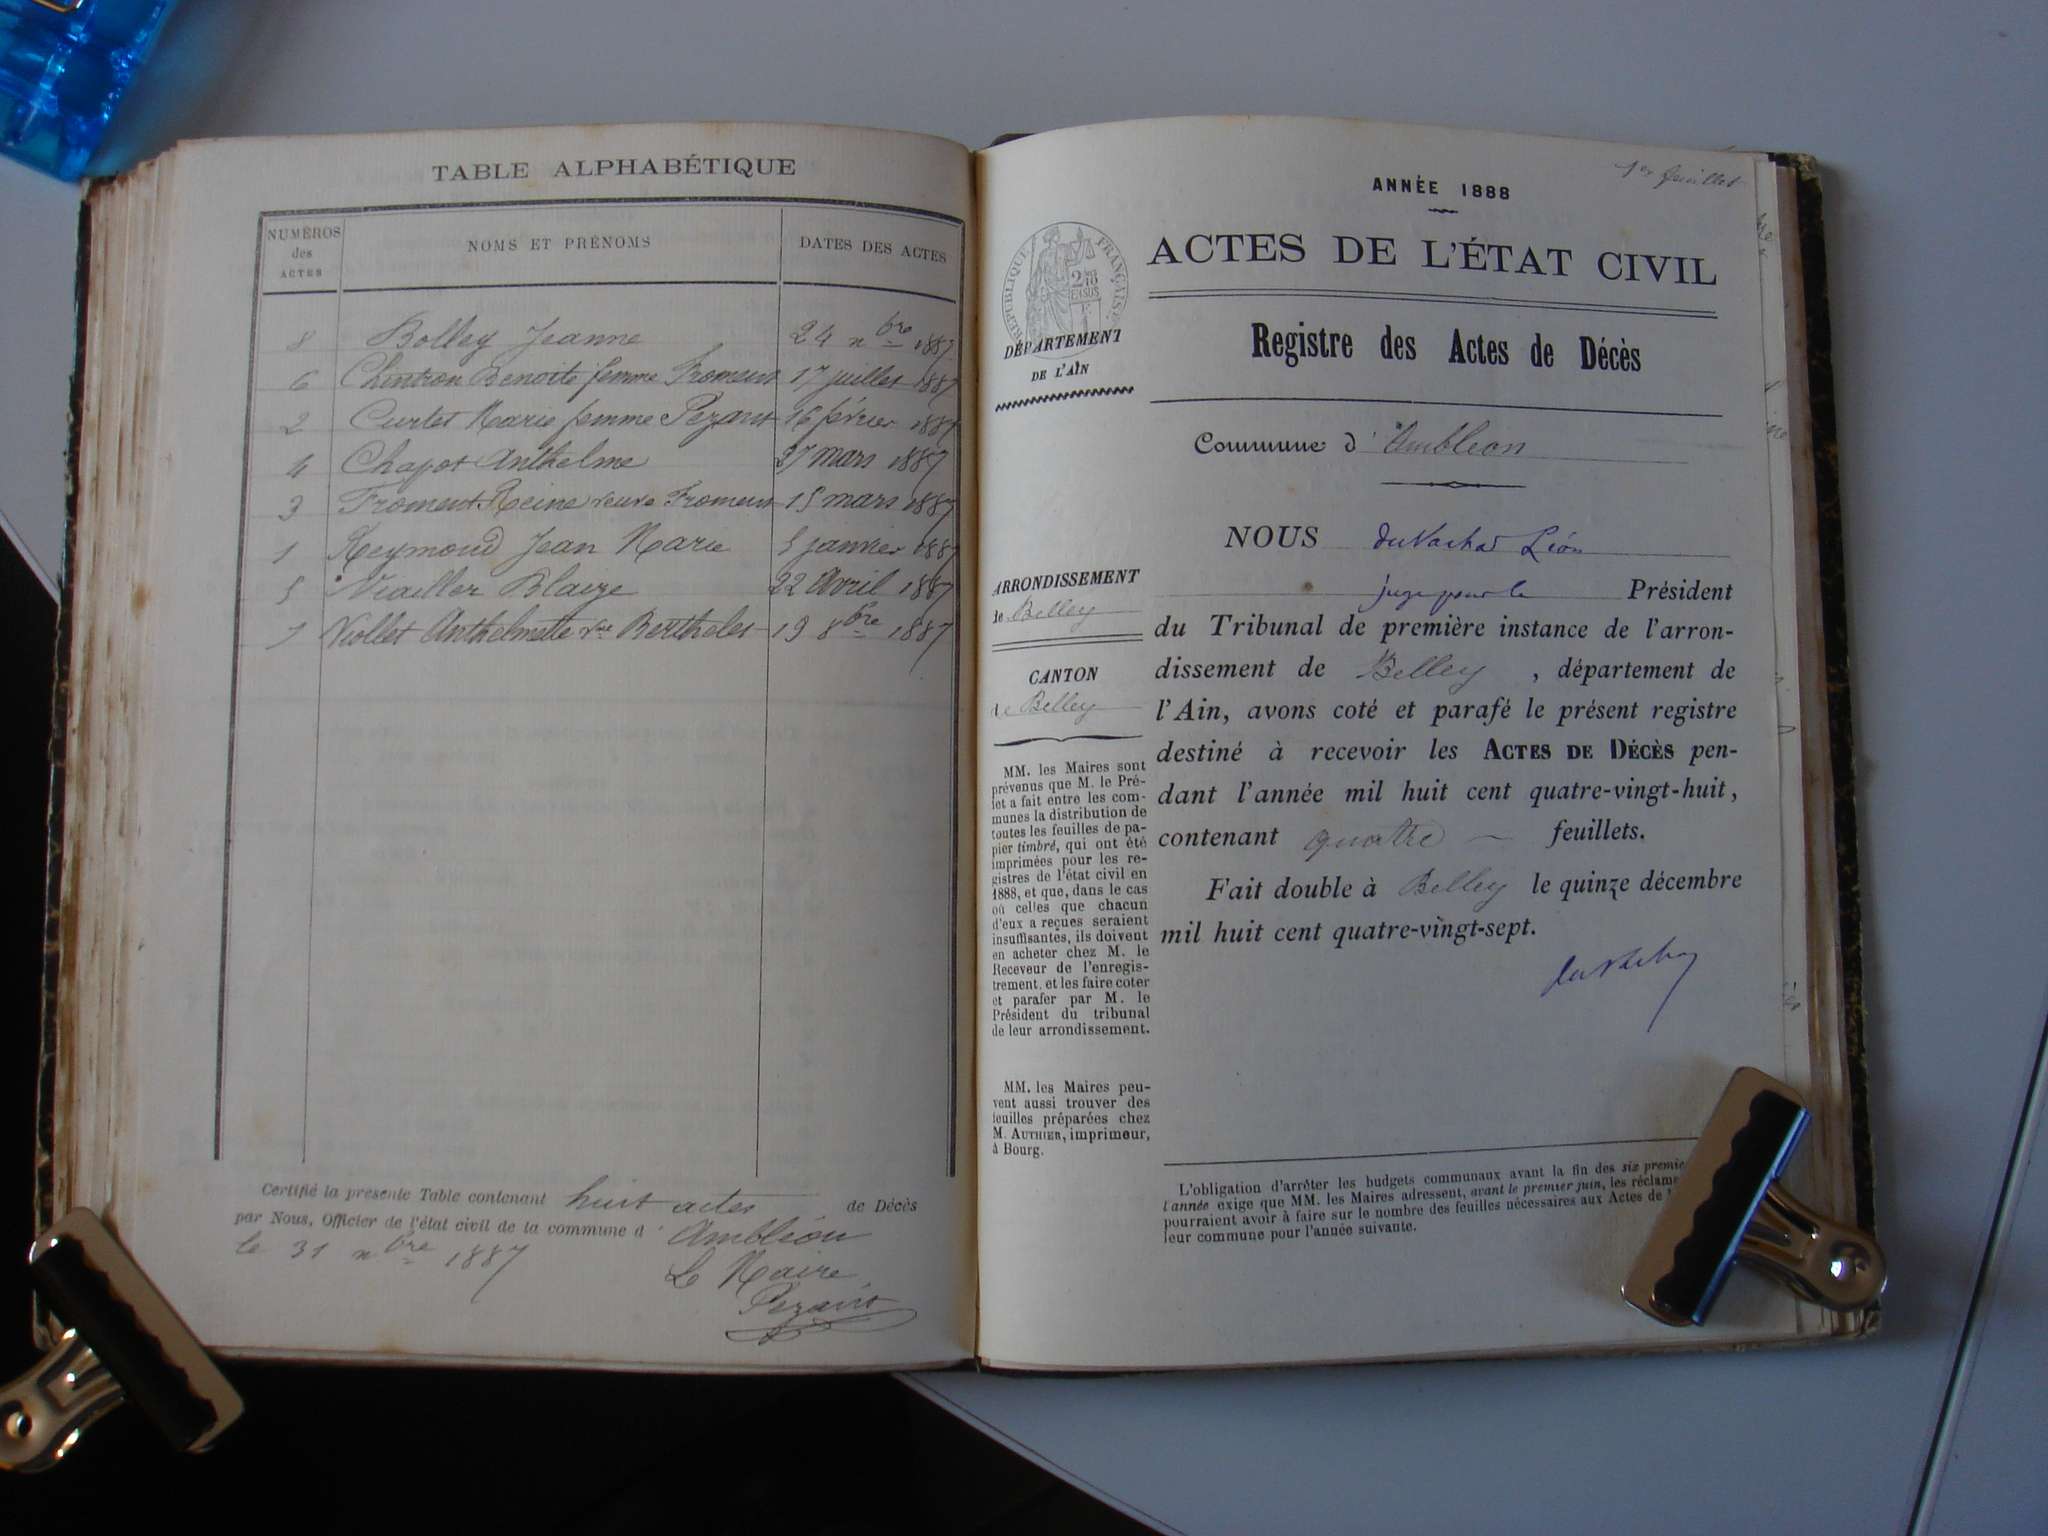 TABLE ALPHABÉTIQUE
NUMÉROS des ACTES NOMS ET PRÉNOMS DATES DES ACTES
8 Bolley Jeanne 24 nbre 1887
6 Chintron Benoite femme Froment 17 juillet 1887
2 Curtet Marie femme Pezant 16 février 1887
4 Chapot Anthelme 27 mars 1887
3 Froment Reine veuve Froment 15 mars 1887
1 Reymond Jean Marie 5 janvier 1887
5 Viailler Blaize 22 Avril 1887
7 Viollet Anthelmette vve Berthelet 19 8bre 1887
Certifié la présente Table contenant huit actes de Décès
par Nous, Officier de l'état civil de la commune d' Ambléon
le 31 nbre 1887
Le Maire
Pezant
1er feuillet
ANNÉE 1888
ACTES DE L'ÉTAT CIVIL
RÉPUBLIQUE FRANÇAISE
2/10 EN SUS
DÉPARTEMENT
DE L'AIN
Registre des Actes de Décès
Commune d' Ambléon
NOUS Léon
juge pour le Président
du Tribunal de première instance de l'arron-
dissement de Belley, département de
l'Ain, avons coté et parafé le présent registre
destiné à recevoir les ACTES DE DÉCÈS pen-
dant l'année mil huit cent quatre-vingt-huit,
contenant quatre feuillets.
Fait double à Belley le quinze décembre
mil huit cent quatre-vingt-sept.
ARRONDISSEMENT
de Belley
CANTON
de Belley
MM. les Maires sont
prévenus que M. le Pré-
fet a fait entre les com-
munes la distribution de
toutes les feuilles de pa-
pier timbré, qui ont été
imprimées pour les re-
gistres de l'état civil en
1888, et que, dans le cas
où celles que chacun
d'eux a reçues seraient
insuffisantes, ils doivent
en acheter chez M. le
Receveur de l'enregis-
trement, et les faire coter
et parafer par M. le
Président du tribunal
de leur arrondissement.
MM. les Maires peu-
vent aussi trouver des
feuilles préparées chez
M. AUTHIER, imprimeur,
à Bourg.
L'obligation d'arrêter les budgets communaux avant la fin des six premie
l'année exige que MM. les Maires adressent, avant le premier juin, les réclam
pourraient avoir à faire sur le nombre des feuilles nécessaires aux Actes de
leur commune pour l'année suivante.